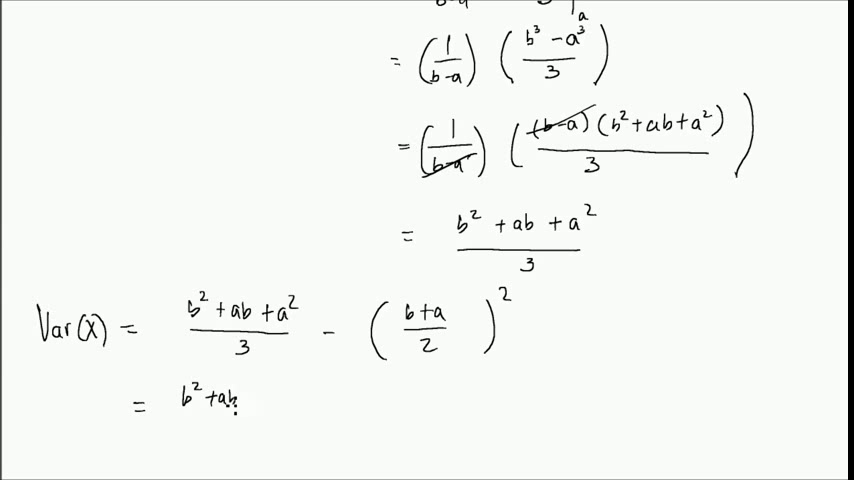 a
= (1/(b-a)) ((b³ - a³)/3)
= (1/(b-a)) ((b-a)(b² + ab + a²)/3)
= (b² + ab + a²)/3
Var(X) = (b² + ab + a²)/3 - ((b+a)/2)²
= b² + ab